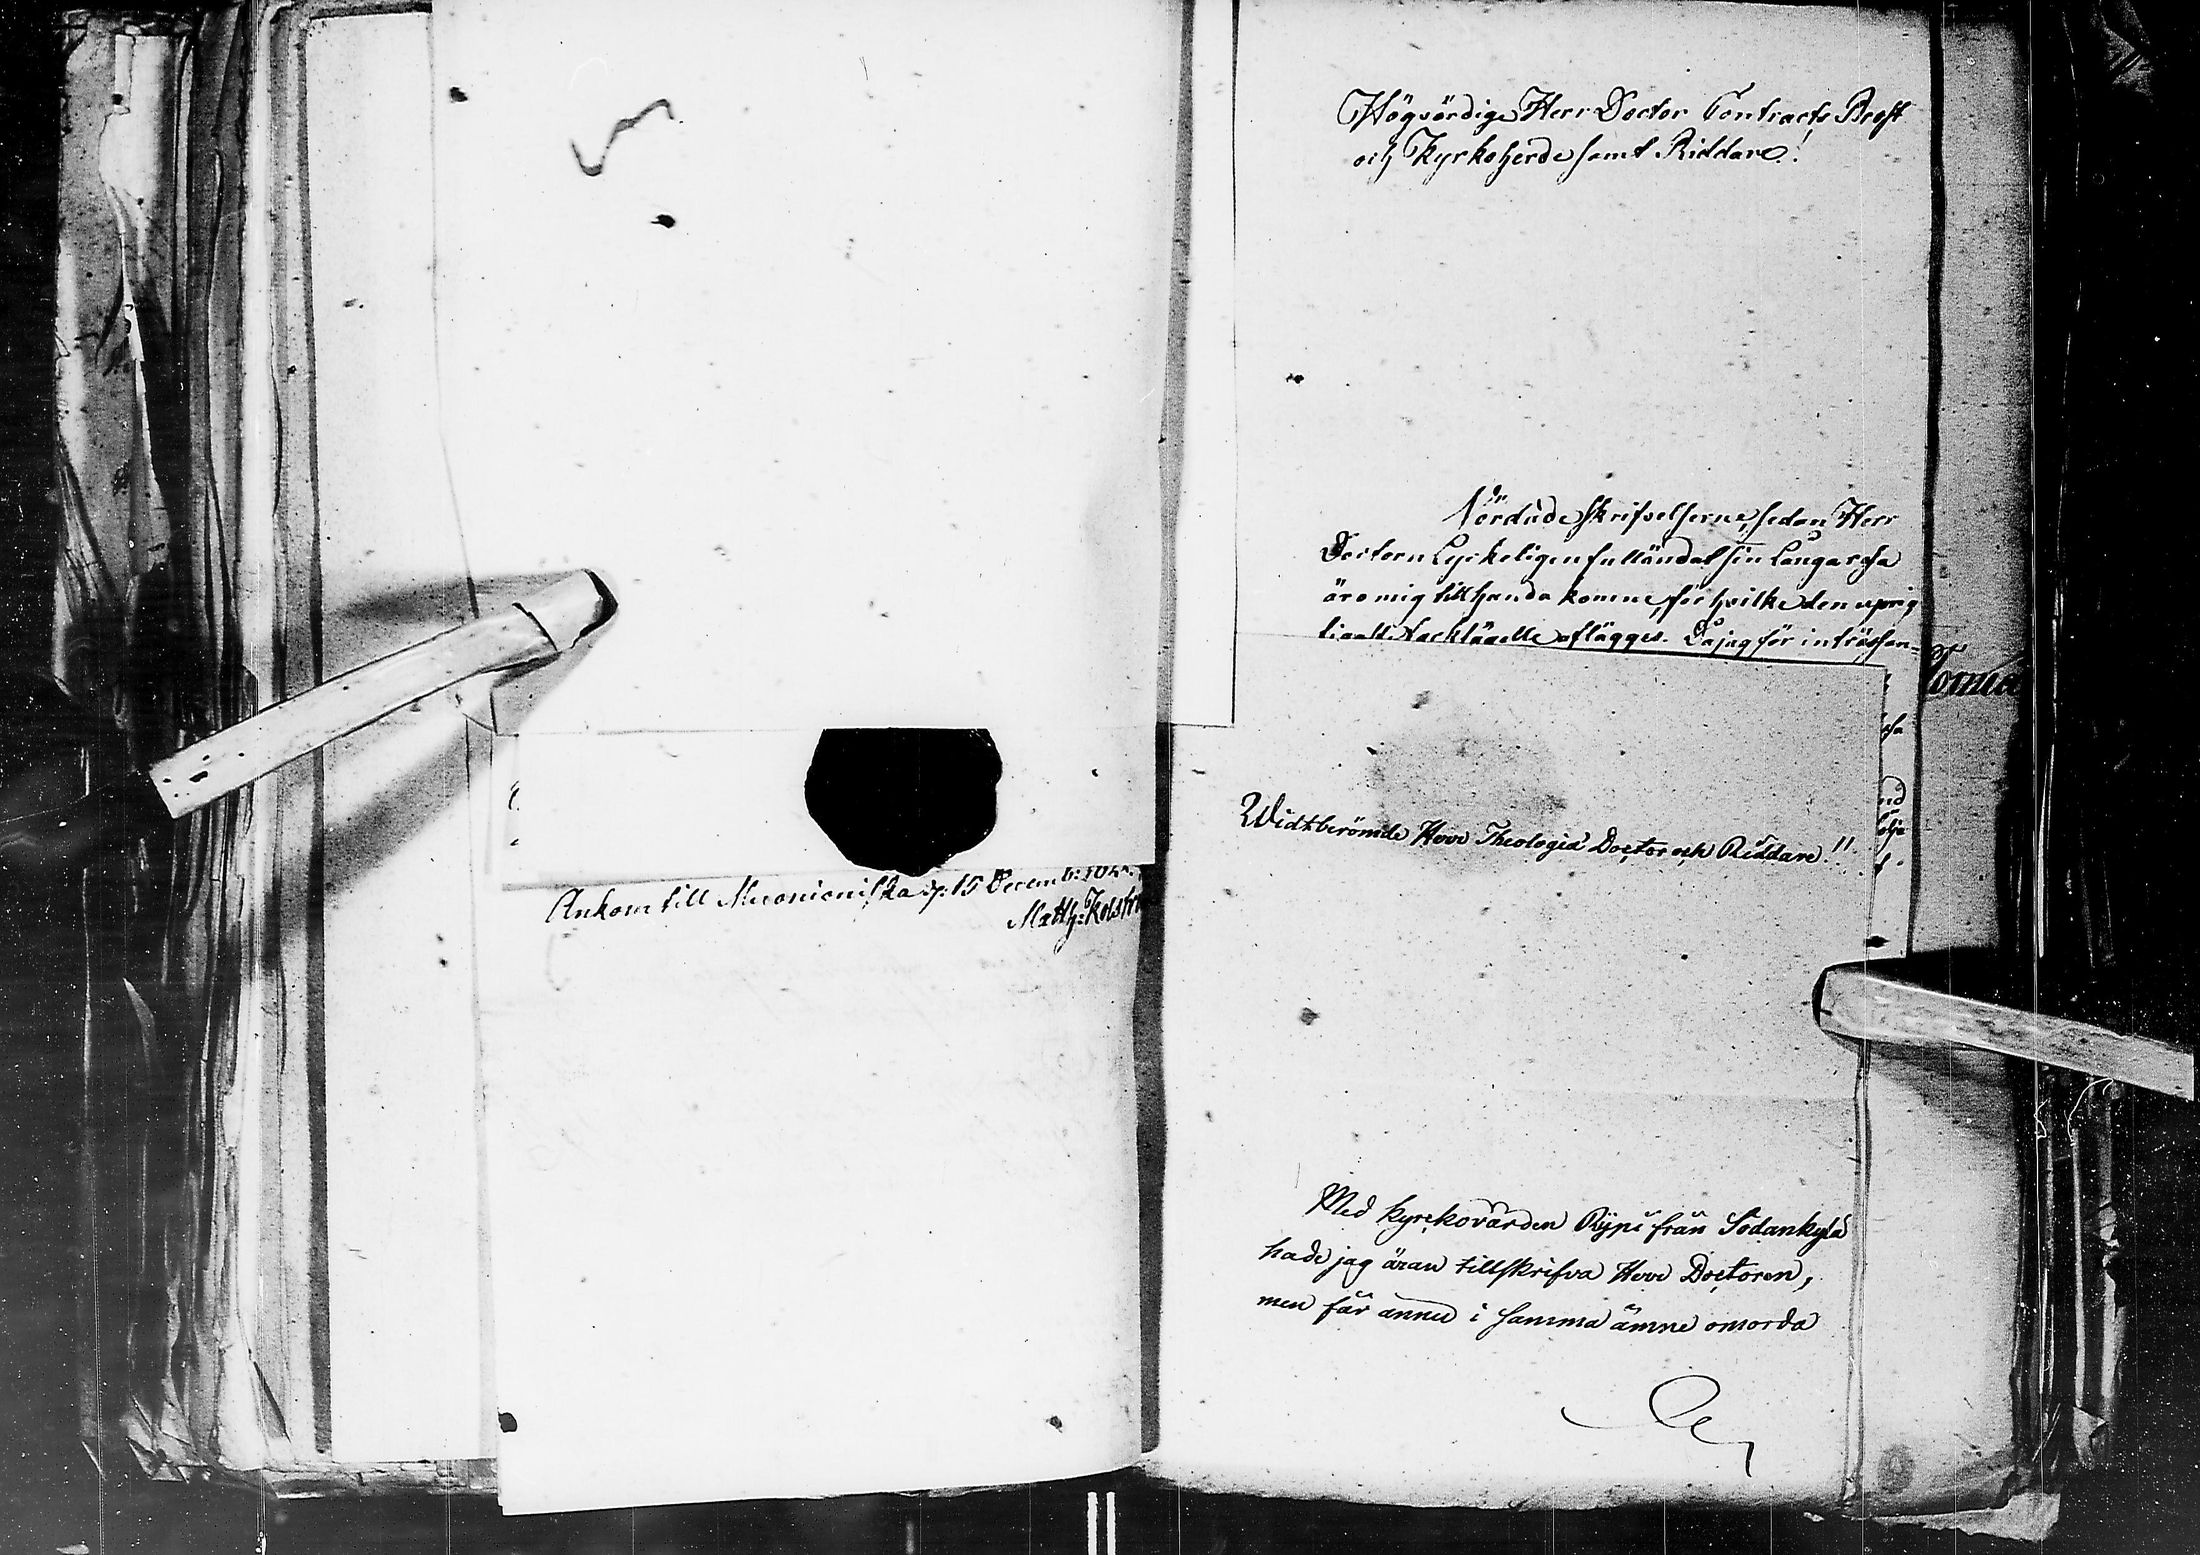 Ankom till Muonioniska d: 15 Decemb:
Matth: Kolström
Högvördige Herr Doctor Contracts Prost
och Kyrkoherde samt Riddare!
Vördade skrifvelserne, sedan Herr
Doctorn Lyckeligen fulländat sin Långa resa
äro mig tillhanda komne, för hvilke den uprig
tigaste tacksägelse aflägges. Då jag för intressen=
Torneå
sa
nd
olja
Widtberömde Herr Theologiæ Doctor och Riddare!!
Med kyrkovärden Rÿpi från Sodankylä
hade jag äran tillskrifva Herr Doctoren,
men får ännu i samma ämne omorda